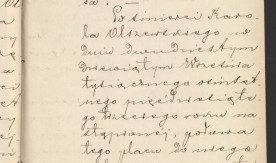 sa. —
Po śmierci Karo-
la Olszewskiego w
dniu dwudziestym
dziewiątym Września
tysiącznego ośmset-
nego pięćdziesiąte-
go trzeciego roku na-
stąpionej, połowa
tego placu do niego